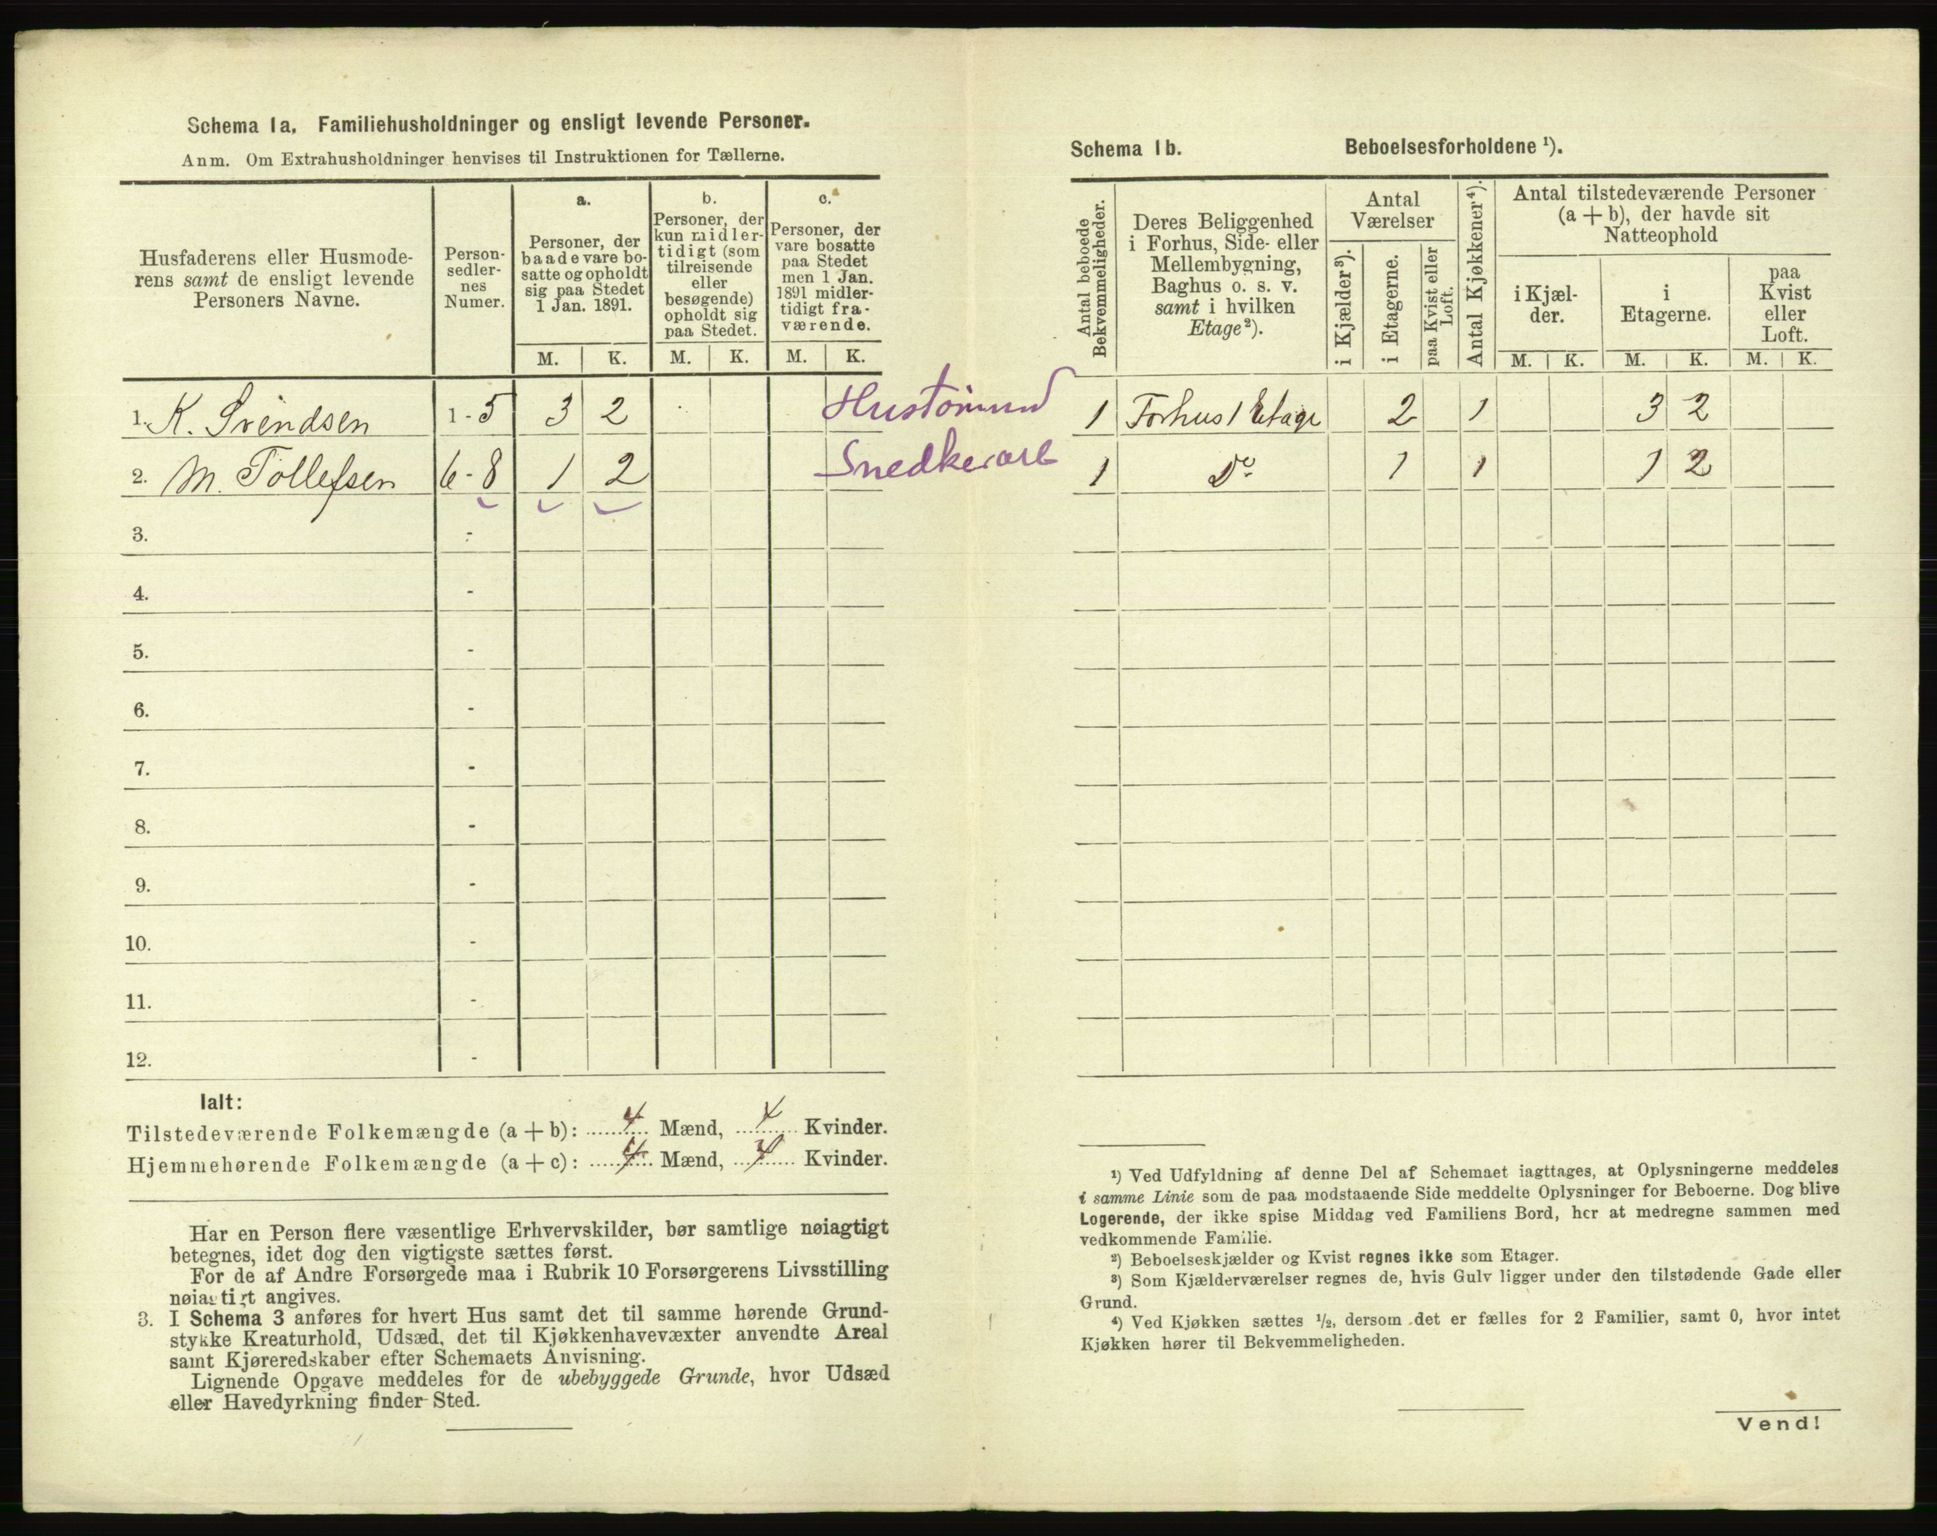 Schema 1a. Familiehusholdninger og ensligt levende Personer.
Anm. Om Extrahusholdninger henvises til Instruktionen for Tællerne.
Husfaderens eller Husmoderens samt de ensligt levende Personers Navne.
Personsedlernes Numer.
a.
Personer, der baade vare bosatte og opholdt sig paa Stedet 1 Jan. 1891.
b.
Personer, der kun midlertidigt (som tilreisende eller besøgende) opholdt sig paa Stedet.
c.
Personer, der vare bosatte paa Stedet men 1 Jan. 1891 midlertidigt fraværende.
M. K. M. K. M. K.
1. K. Svendsen 1-5 3 2 Hustømmd
2. M. Tollefsen 6-8 1 2 Snedkerarb
3. -
4. -
5. -
6. -
7. -
8. -
9. -
10. -
11. -
12. -
Ialt:
Tilstedeværende Folkemængde (a + b): 4 Mænd, 4 Kvinder.
Hjemmehørende Folkemængde (a + c): 4 Mænd, 4 Kvinder.
Har en Person flere væsentlige Erhvervskilder, bør samtlige nøiagtigt
betegnes, idet dog den vigtigste sættes først.
For de af Andre Forsørgede maa i Rubrik 10 Forsørgerens Livsstilling
nøiagtigt angives.
3. I Schema 3 anføres for hvert Hus samt det til samme hørende Grund-
stykke Kreaturhold, Udsæd, det til Kjøkkenhavevæxter anvendte Areal
samt Kjøreredskaber efter Schemaets Anvisning.
Lignende Opgave meddeles for de ubebyggede Grunde, hvor Udsæd
eller Havedyrkning finder Sted.
Schema 1b. Beboelsesforholdene ¹).
Antal beboede Bekvemmeligheder.
Deres Beliggenhed i Forhus, Side- eller Mellembygning, Baghus o. s. v. samt i hvilken Etage ²).
Antal Værelser
i Kjælder ³).
i Etagerne.
paa Kvist eller Loft.
Antal Kjøkkener ⁴).
Antal tilstedeværende Personer (a + b), der havde sit Natteophold
i Kjælder.
i Etagerne.
paa Kvist eller Loft.
M. K. M. K. M. K.
1 Forhus 1 Etage 2 1 3 2
1 Do 1 1 1 2
¹) Ved Udfyldning af denne Del af Schemaet iagttages, at Oplysningerne meddeles
i samme Linie som de paa modstaaende Side meddelte Oplysninger for Beboerne. Dog blive
Logerende, der ikke spise Middag ved Familiens Bord, her at medregne sammen med
vedkommende Familie.
²) Beboelseskjælder og Kvist regnes ikke som Etager.
³) Som Kjælderværelser regnes de, hvis Gulv ligger under den tilstødende Gade eller
Grund.
⁴) Ved Kjøkken sættes ½, dersom det er fælles for 2 Familier, samt 0, hvor intet
Kjøkken hører til Bekvemmeligheden.
Vend!